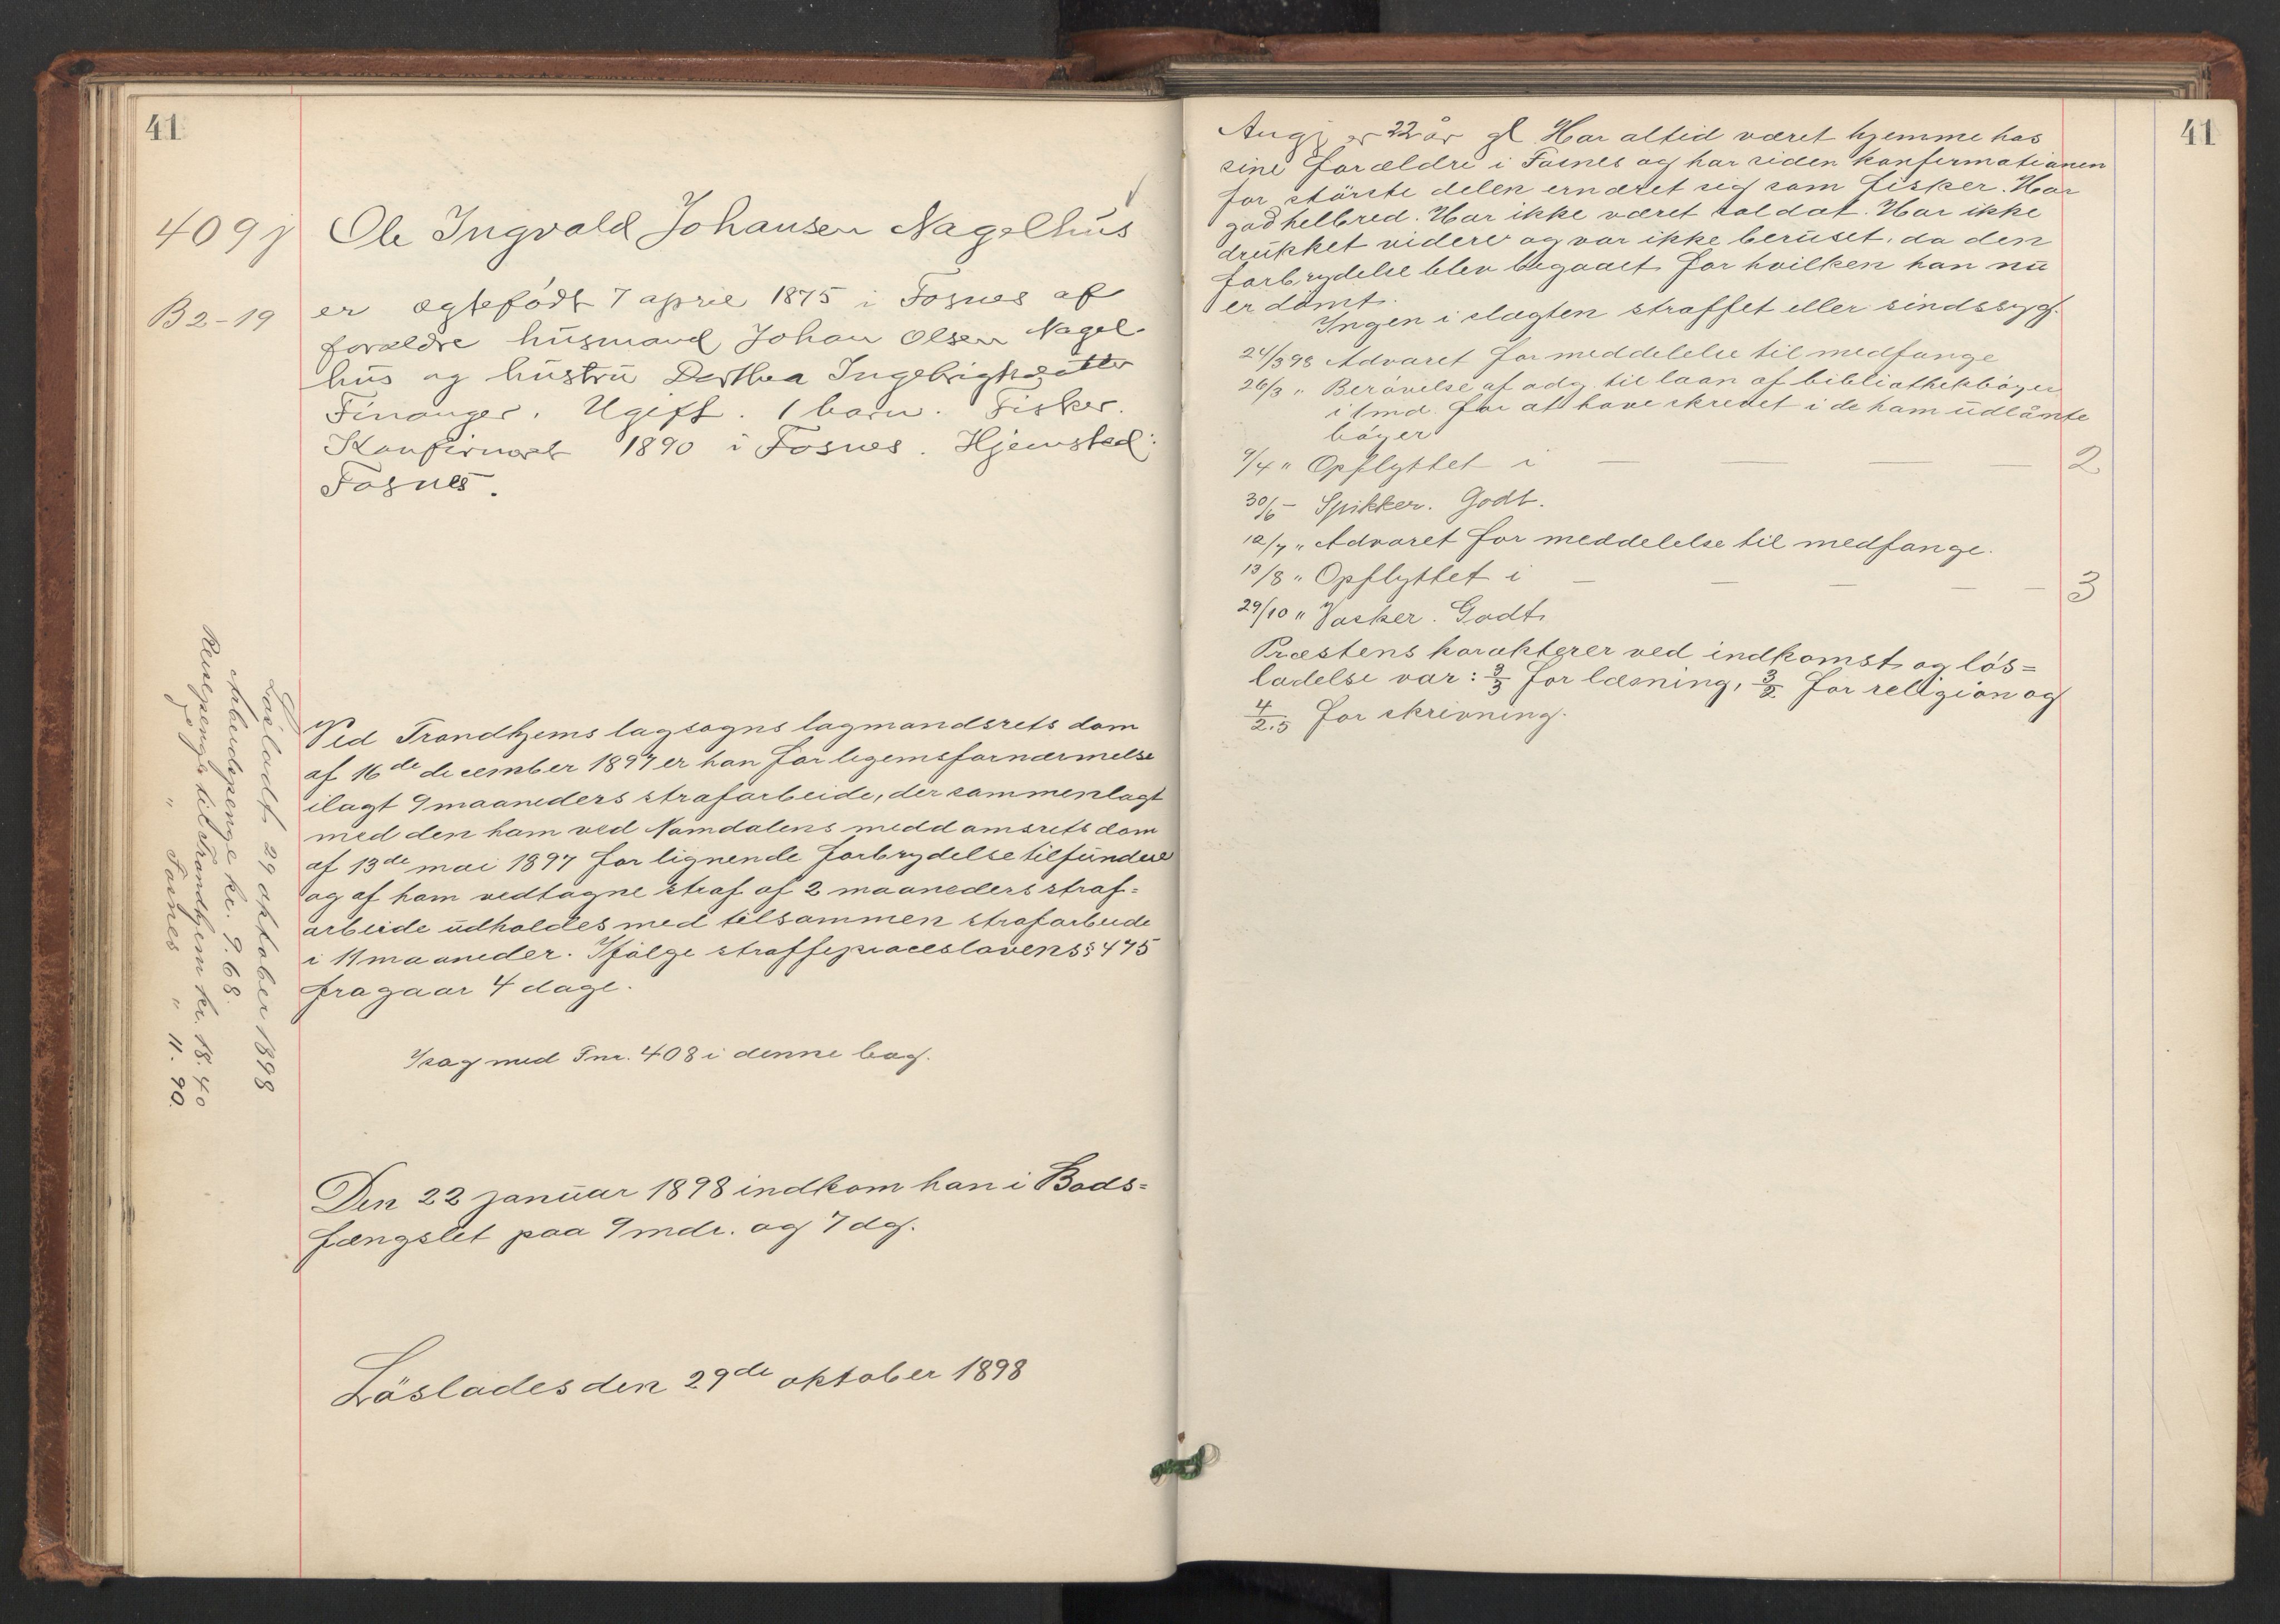 41
409j
Ole Ingvald Johansen Nagelhus
B2-19
er ægtefødt 7 april 1875 i Fosnes af
forældre husmand Johan Olsen Nagel-
hus og hustru Dorthea Ingebrigtsdatter
Finanger. Ugift. 1 barn. Fisker.
Konfirmert 1890 i Fosnes. Hjemsted:
Fosnes.
Ved Trondhjems lagsogns lagmandsrets dom
af 16de december 1897 er han for legemsfornærmelse
ilagt 9 maaneders strafarbeide, der sammenlagt
med den ham ved Namdalens meddomsrets dom
af 13de mai 1897 for lignende forbrydelse tilfundne
og af ham vedtagne straf af 2 maaneders straf=
arbeide udholdes med tilsammen strafarbeide
i 11 maaneder. Ifølge straffeproceslovens § 475
fragaar 4 dage.
I sag med Fnr. 408 i denne bog.
Den 22 januar 1898 indkom han i Bods=
fængslet paa 9 mdr. og 7 dg.
Løslades den 29de oktober 1898
Løsladt 29 oktober 1898
Arbeidspenge kr. 9.68.
Reisepenge til Trondhjem kr. 18.40
" Fosnes " 11.90.
41
Angj er 22 år gl Har altid været hjemme hos
sine forældre i Fosnes og har siden konfirmationen
for største delen ernæret sig som fisker. Har
god helbred. Har ikke været soldat. Har ikke
drukket videre og var ikke beruset, da den
forbrydelse blev begaaet for hvilken han nu
er dømt.
Ingen i slægten straffet eller sindssyg.
24/3 98 Advaret for meddelelse til medfange
26/3 " Berøvelse af adg. til laan af bibliothekbøger
i 1 md. for at have skrevet i de ham udlånte
bøger
9/4 " Opflyttet i — — — — 2
30/6 - Spikker. Godt.
12/7 " Advaret for meddelelse til medfange.
13/8 " Opflyttet i — — — — 3
29/10 " Vasker. Godt.
Præstens karakterer ved indkomst og løs=
ladelse var: 3/3 for læsning, 3/3 for religion og
4/2.5 for skrivning.